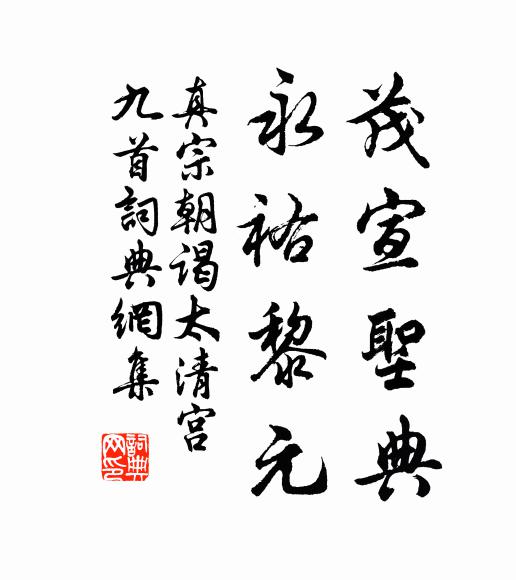 茂宣聖典
永祐黎元
真宗朝謁太清宮
九首詞典網集
詞典網印